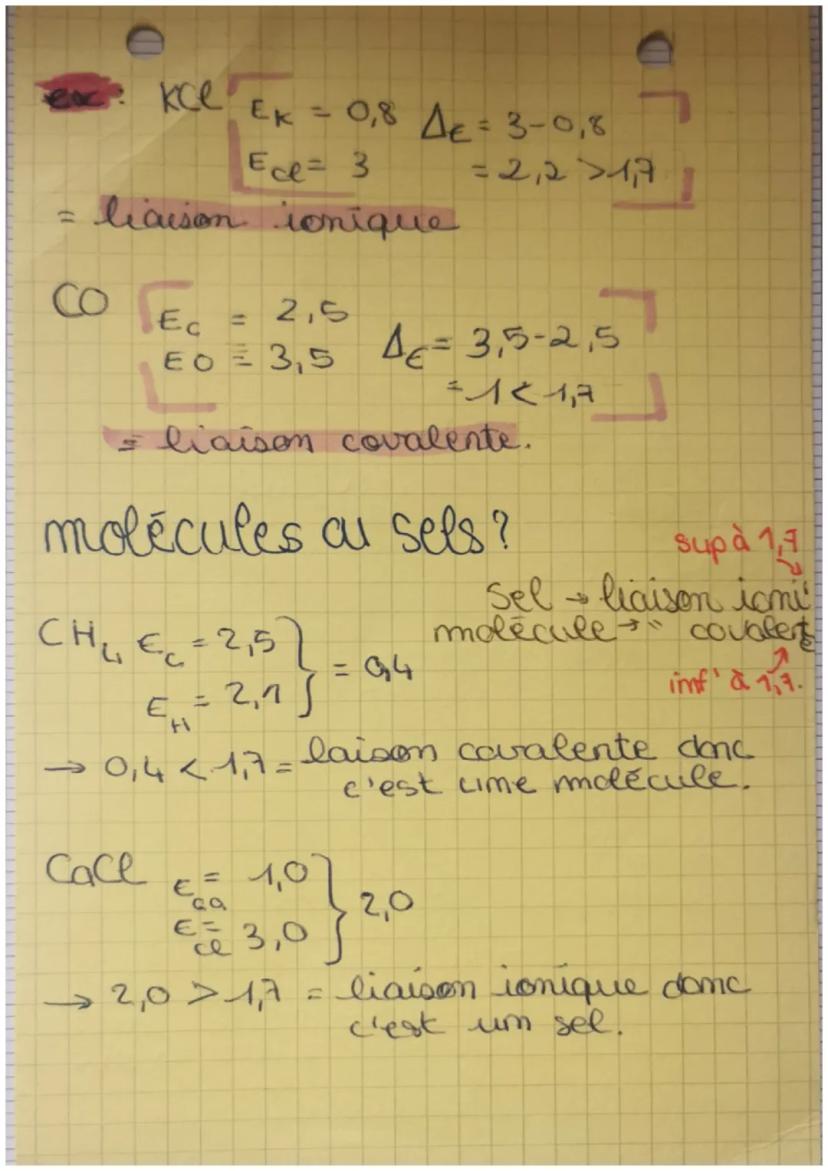 ex: KCl EK = 0,8 Δε = 3-0,8
ECl = 3 = 2,2 > 1,7
= liaison ionique
CO EC = 2,5
EO = 3,5 Δε = 3,5-2,5
= 1 < 1,7
= liaison covalente.
molécules ou sels?
sup à 1,7
Sel → liaison ioni'
molécule → " covalente
inf' à 1,7.
CH4 εC = 2,5
εH = 2,1 } = 0,4
→ 0,4 < 1,7 = laison covalente donc
c'est une molécule.
CaCl εca = 1,0
εcl = 3,0 } 2,0
→ 2,0 > 1,7 = liaison ionique donc
c'est un sel.